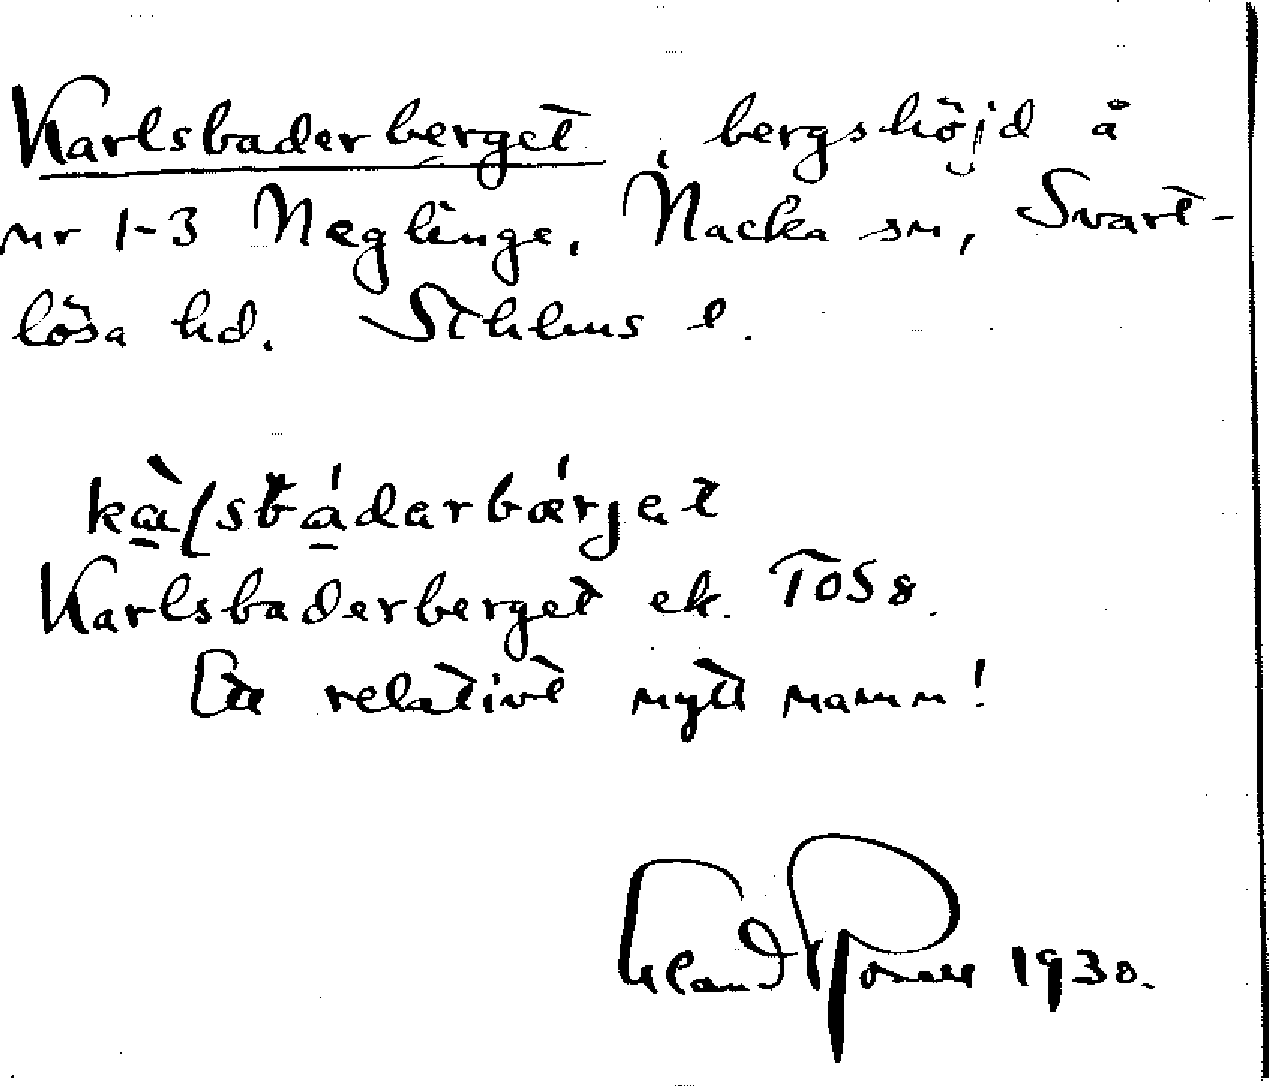 Karlsbaderberget, bergshöjd å
nr 1-3 Neglinge, Nacka sn, Svart-
lösa hd. Sthlms l.
Karlsbaderberget ek. TOS 8.
Ett relativt nytt namn!
1930.